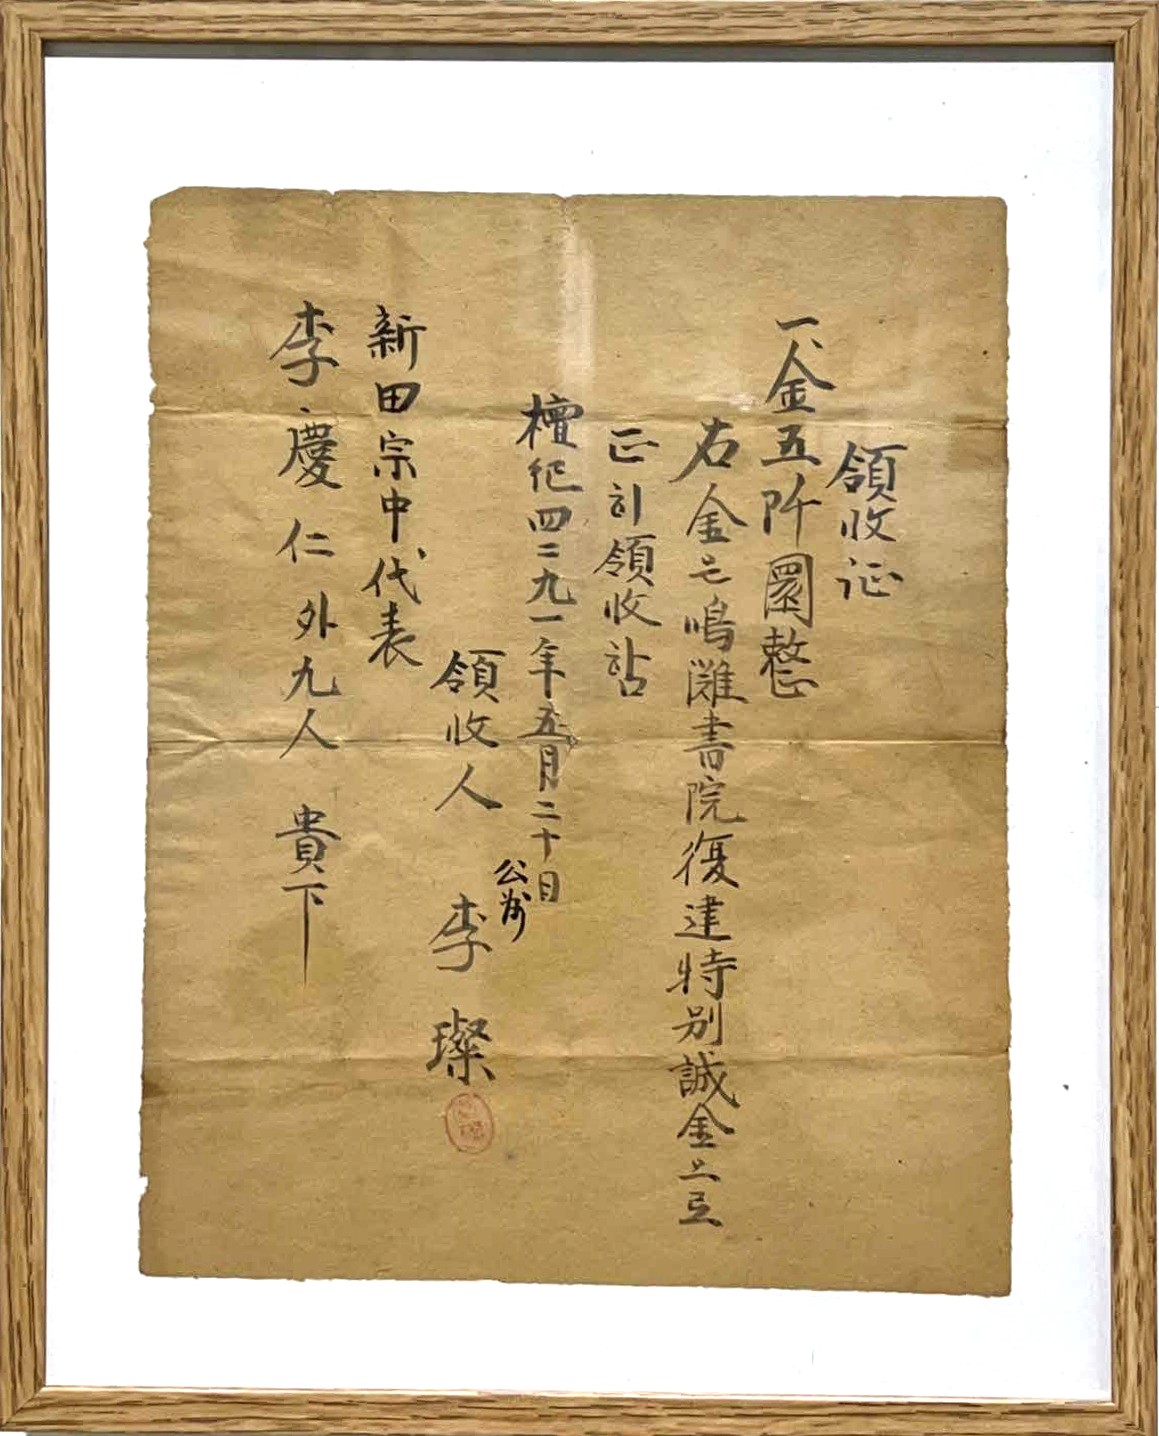 領收证
一、金五阡圜整
右金은鳴灘書院復建特別誠金으로
正히領收함
檀紀四二九一年五月二十日
公州
領收人 李璨
新田宗中代表
李慶仁外九人 貴下